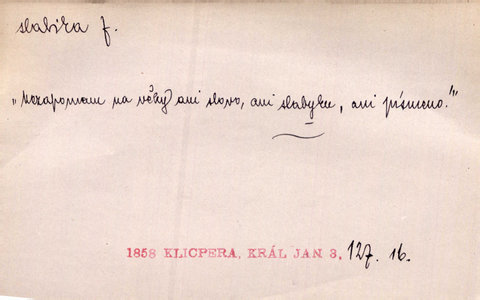 slabika f.
„Nezapomenu na věky ani slovo, ani slabyku, ani písmeno."
1858 KLICPERA, KRÁL JAN 3, 127. 16.